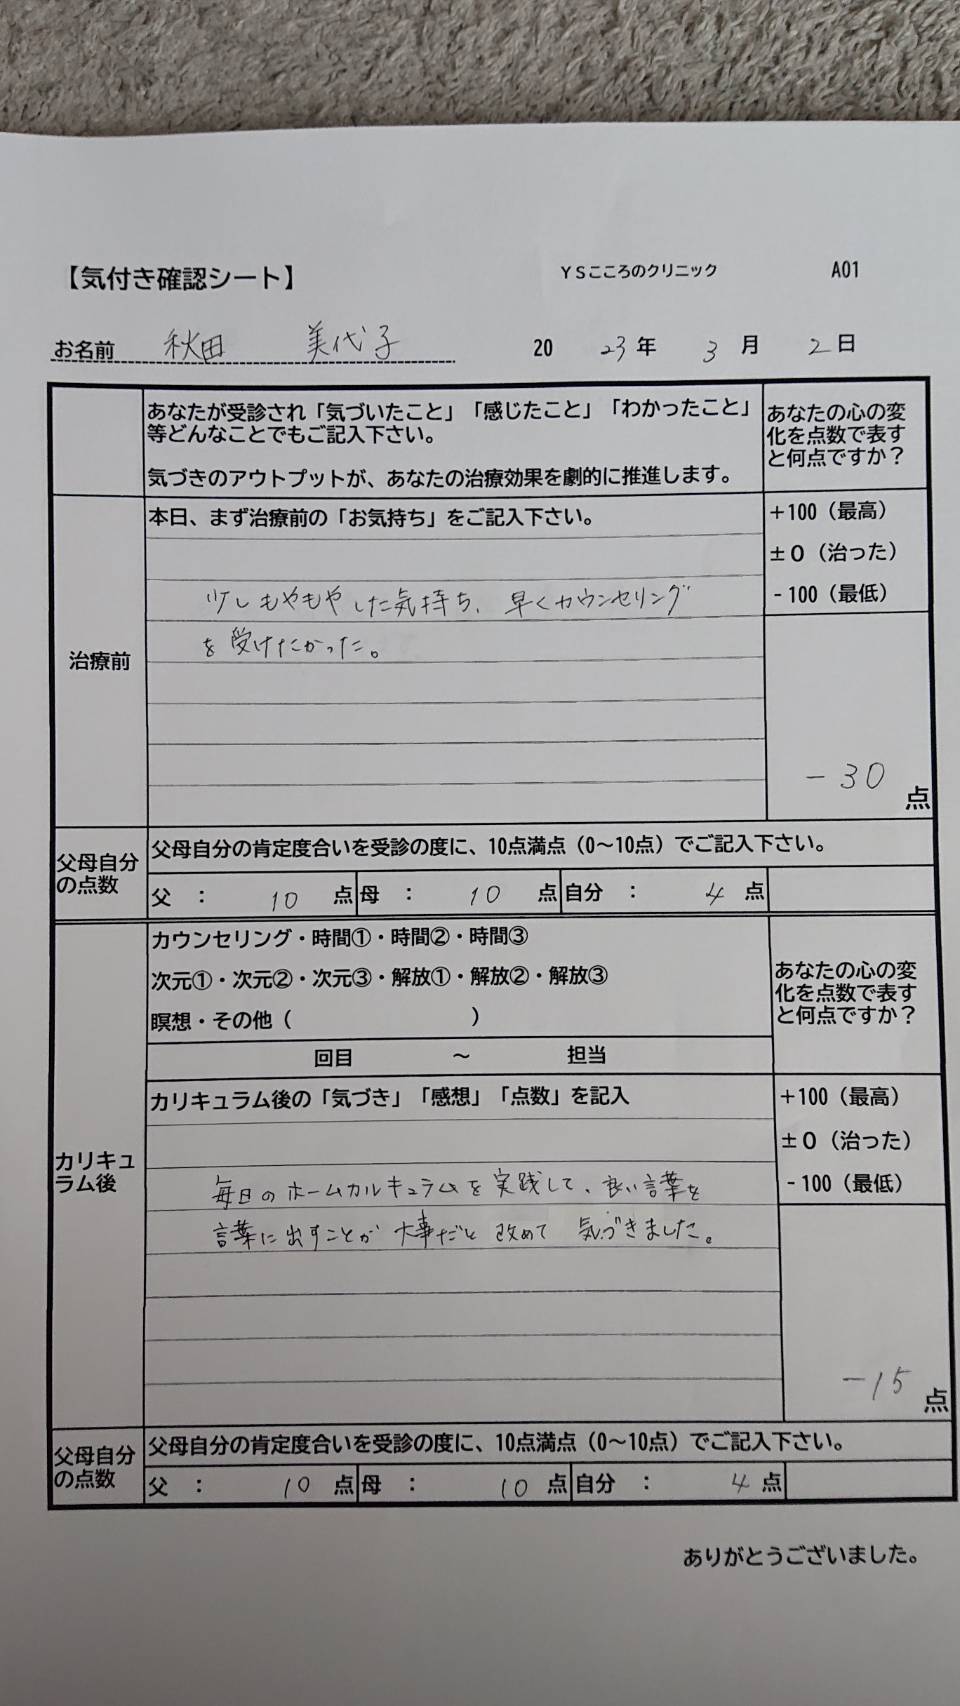 【気付き確認シート】 YSこころのクリニック A01
お名前 秋田 美代子 2023年 3月 2日
あなたが受診され「気づいたこと」「感じたこと」「わかったこと」
等どんなことでもご記入下さい。
気づきのアウトプットが、あなたの治療効果を劇的に推進します。
あなたの心の変
化を点数で表す
と何点ですか？
治療前
本日、まず治療前の「お気持ち」をご記入下さい。
少しもやもやした気持ち、早くカウンセリング
を受けたかった。
+100（最高）
±0（治った）
-100（最低）
-30点
父母自分
の点数
父母自分の肯定度合いを受診の度に、10点満点（0～10点）でご記入下さい。
父 ： 10 点 母 ： 10 点 自分 ： 4 点
カリキュ
ラム後
カウンセリング・時間①・時間②・時間③
次元①・次元②・次元③・解放①・解放②・解放③
瞑想・その他（ ）
回目 ～ 担当
あなたの心の変
化を点数で表す
と何点ですか？
カリキュラム後の「気づき」「感想」「点数」を記入
毎日のホームカルキュラムを実践して、良い言葉を
言葉に出すことが大事だと改めて気づきました。
+100（最高）
±0（治った）
-100（最低）
-15点
父母自分
の点数
父母自分の肯定度合いを受診の度に、10点満点（0～10点）でご記入下さい。
父 ： 10 点 母 ： 10 点 自分 ： 4 点
ありがとうございました。